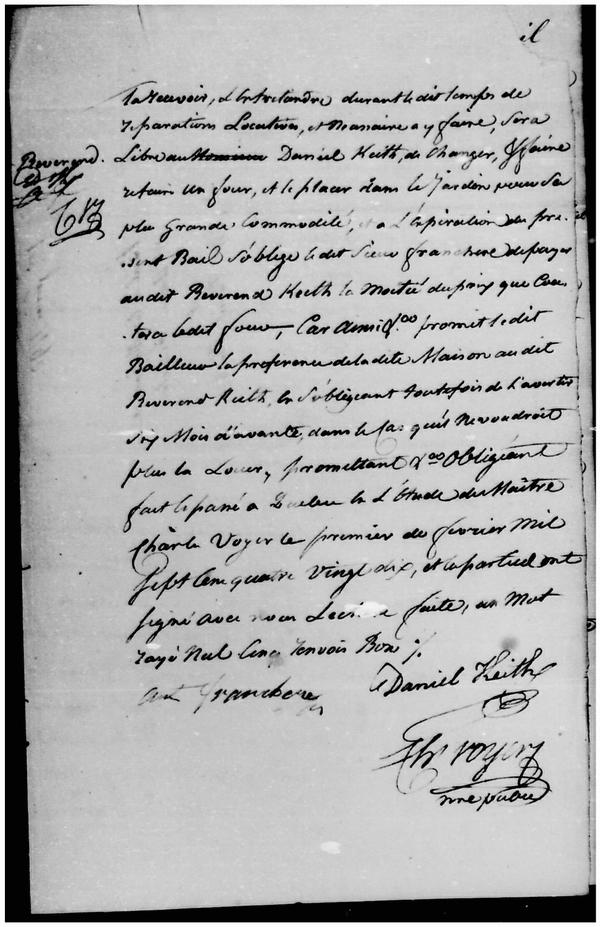 il
la recevoir, d'Entretendre durant ledit temps de
reparations Locatives, et Nessaire a y faire, Sera
Reverend
Libre au Monsieur Daniel Keith, de Changer, &faire
refaire un four, et le placer dans le Jardin pour Sa
plus Grande Commodité, et a L'Expiration du pre-
sent Bail S'oblige ledit Sieur franchere de payer
audit Reverend Keith la Moitié du prix que Cou-
tera ledit four, Car Ainsi &ca promet ledit
Bailleur la preference de ladite Maison audit
Reverend Keith, En S'obligeant toutefois de L'avertir
Six Mois d'avance, dans le Cas qu'il Ne voudroit
plus la Louer, promettant &ca Obligeant
fait & passé a Quebec En L'étude de Maître
Charle Voyer le premier de fevrier Mil
Sept Cent quatre Vingt dix, et les partie ont
Signé avec nous Lecture faite, un Mot
rayé Nul Cinq renvois Bon %
Daniel Keith
Ant franchere
Chs Voyer
nre public